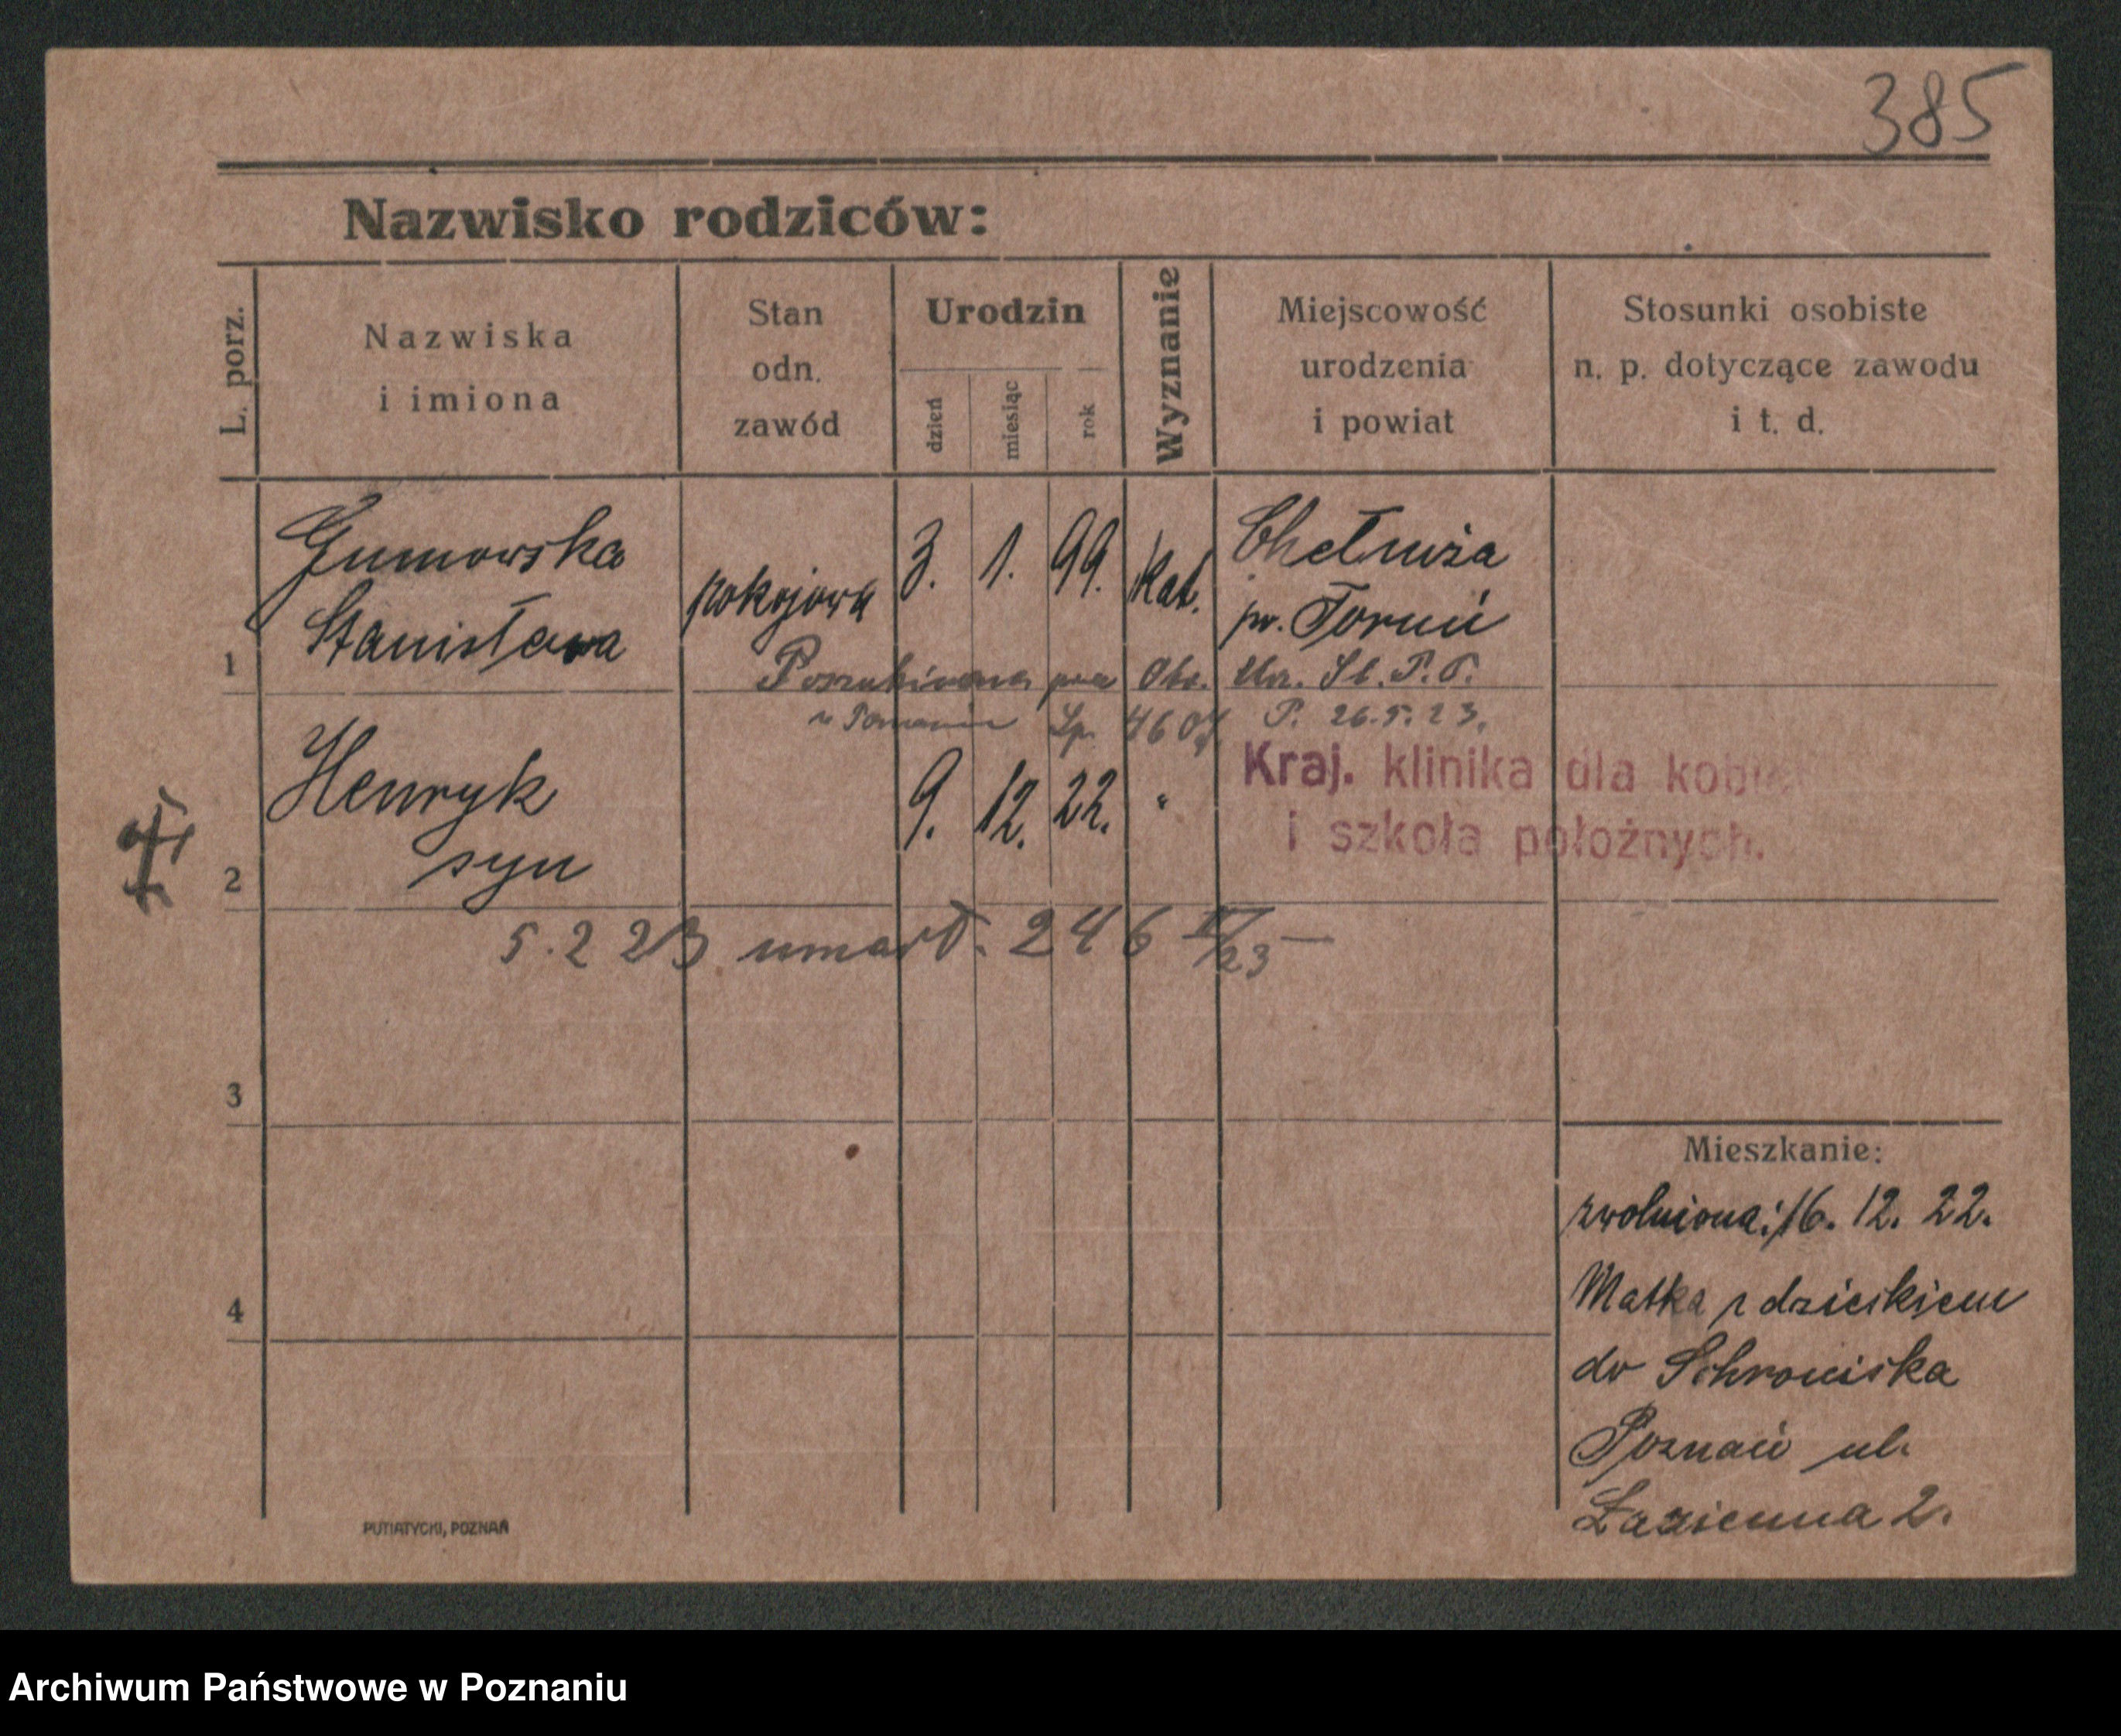 385
Nazwisko rodziców:
L. porz.
Nazwiska
i imiona
Stan
odn.
zawód
Urodzin
dzień
miesiąc
rok
Wyznanie
Miejscowość
urodzenia
i powiat
Stosunki osobiste
n. p. dotyczące zawodu
i t. d.
1
Gumowska
Stanisława
pokojowa
3. 1. 99.
Kat.
Chełmża
pw. Toruń
Poszukiwana
Lp. 4607 P. 26.5.23.
2
Henryk
syn
9. 12. 22.
"
Kraj. klinika dla kobiet
i szkoła położnych.
5.2 23 umarł. 246 II/23
3
4
Mieszkanie:
zwolniona: 16. 12. 22.
Matka z dzieckiem
do Schroniska
Poznań ul.
Łazienna 2.
PUTIATYCKI, POZNAŃ
Archiwum Państwowe w Poznaniu